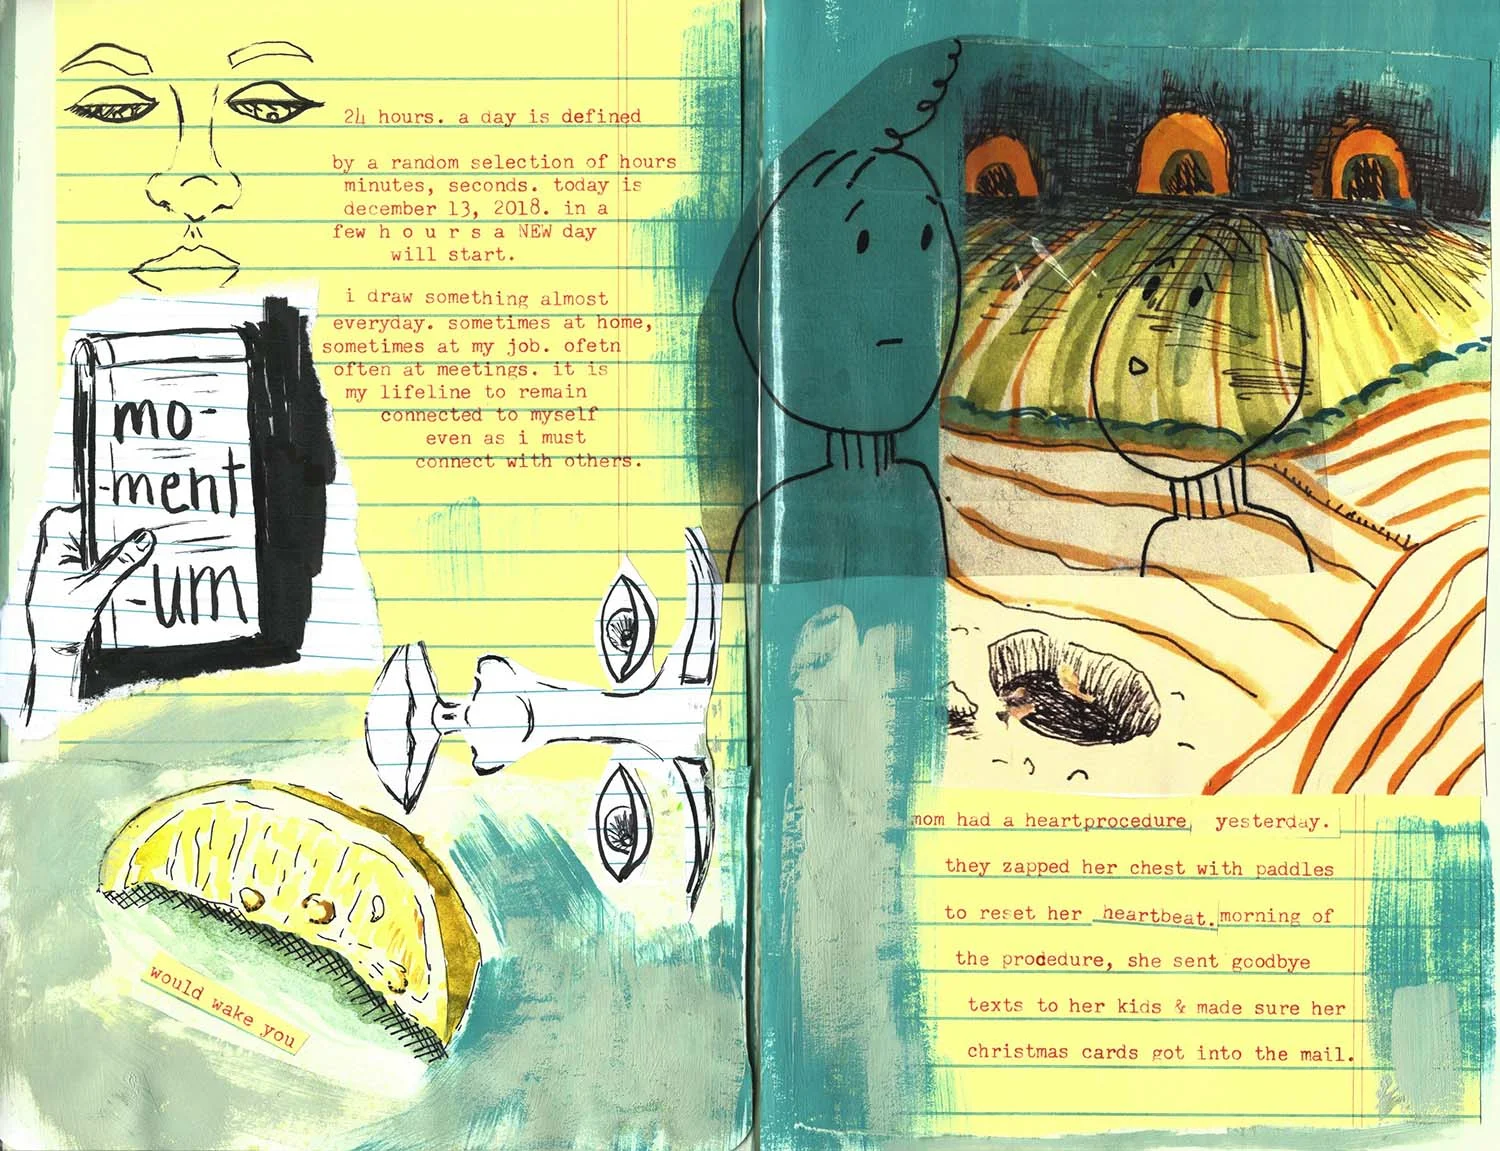 24 hours. a day is defined
by a random selection of hours
minutes, seconds. today is
december 13, 2018. in a
few h o u r s a NEW day
will start.
i draw something almost
everyday. sometimes at home,
sometimes at my job. ofetn
often at meetings. it is
my lifeline to remain
connected to myself
even as i must
connect with others.
mo-
-ment
-um
would wake you
mom had a heartprocedure yesterday.
they zapped her chest with paddles
to reset her heartbeat. morning of
the prodedure, she sent goodbye
texts to her kids & made sure her
christmas cards got into the mail.